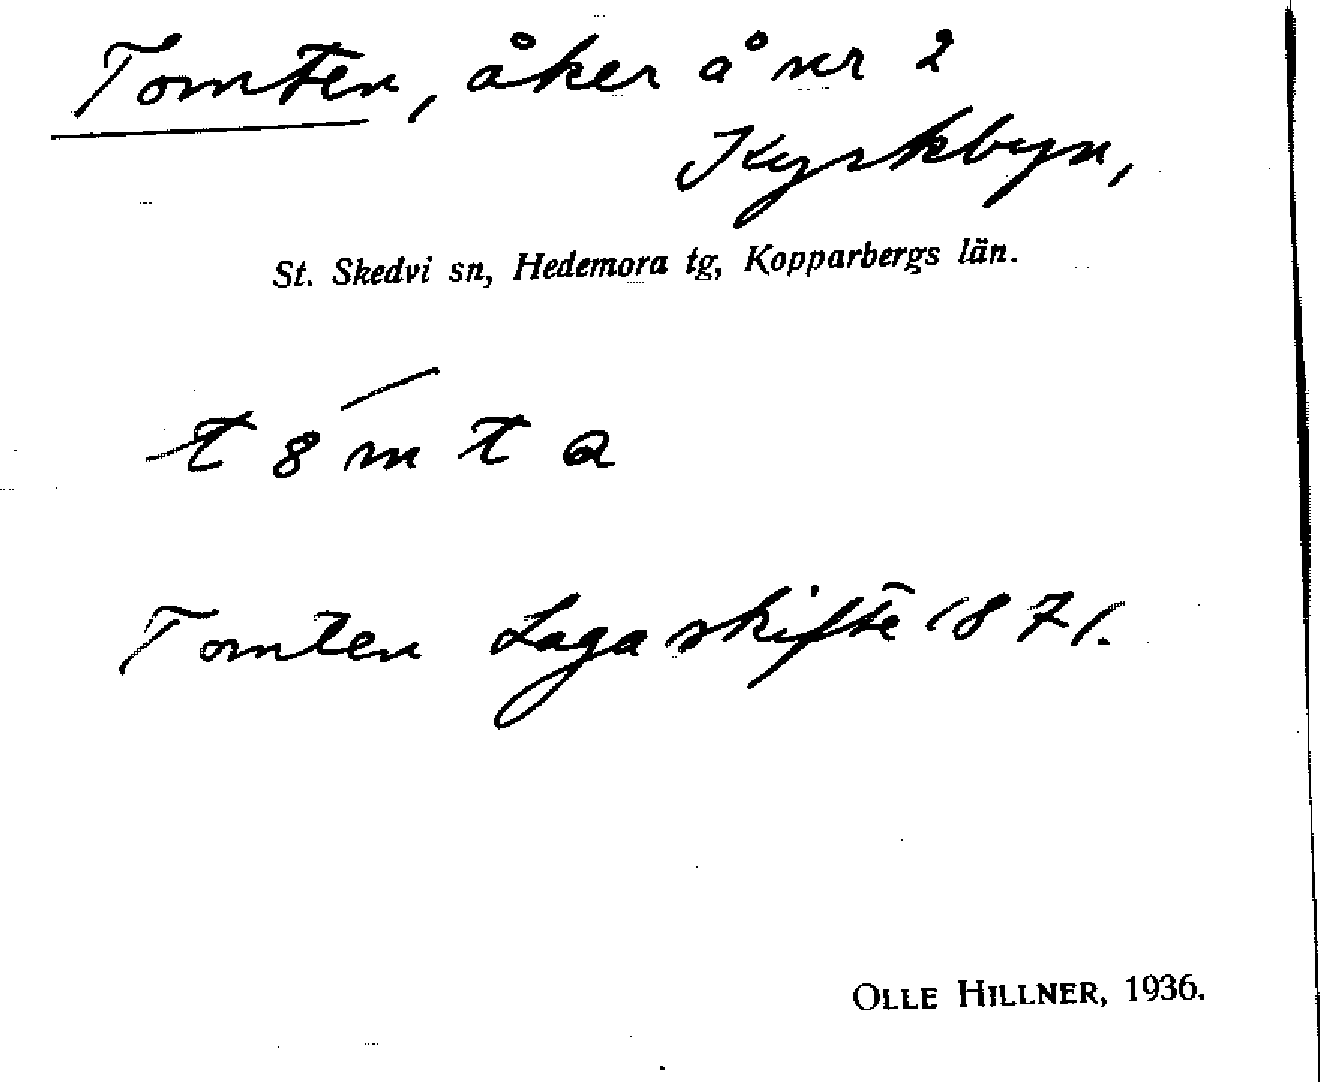 Tomten, åker å nr 2
Kyrkbyn,
St. Skedvi sn, Hedemora tg, Kopparbergs län.
t 8 ḿ t a
Tomten Laga skifte 1871.
OLLE HILLNER, 1936.